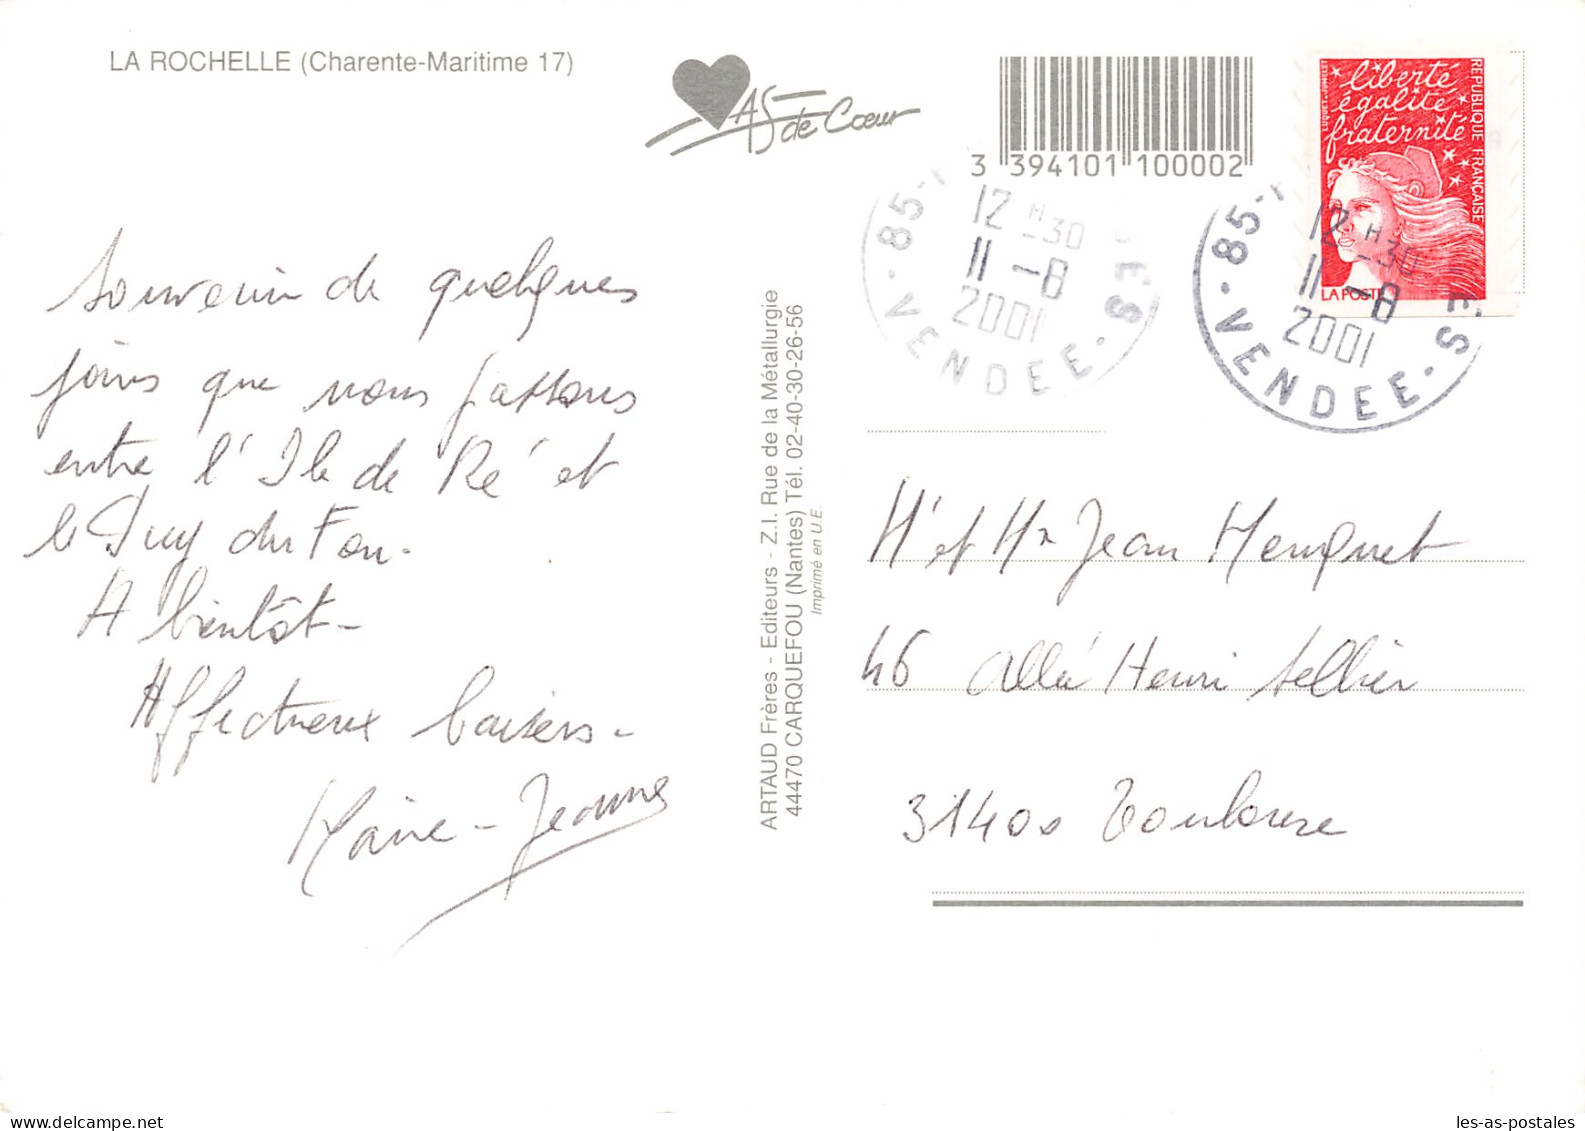 LA ROCHELLE (Charente-Maritime 17)
AS de Cœur
3 394101 100002
liberté
égalité
fraternité
REPUBLIQUE FRANÇAISE
LA POSTE
85
12 H 30
11 -8
2001
VENDEE
ES
85
12 H 30
11 -8
2001
VENDEE
ES
Souvenir de quelques
jours que nous passons
entre l'Ile de Ré et
le Puy du Fou.
A bientôt -
Affectueux baisers -
Marie-Jeanne
ARTAUD Frères - Editeurs - Z.I. Rue de la Métallurgie
44470 CARQUEFOU (Nantes) Tél. 02-40-30-26-56
Imprimé en U.E.
Mr et Mme Jean
46 allée Henri Sellier
31400 Toulouse
les-as-postales
www.delcampe.net